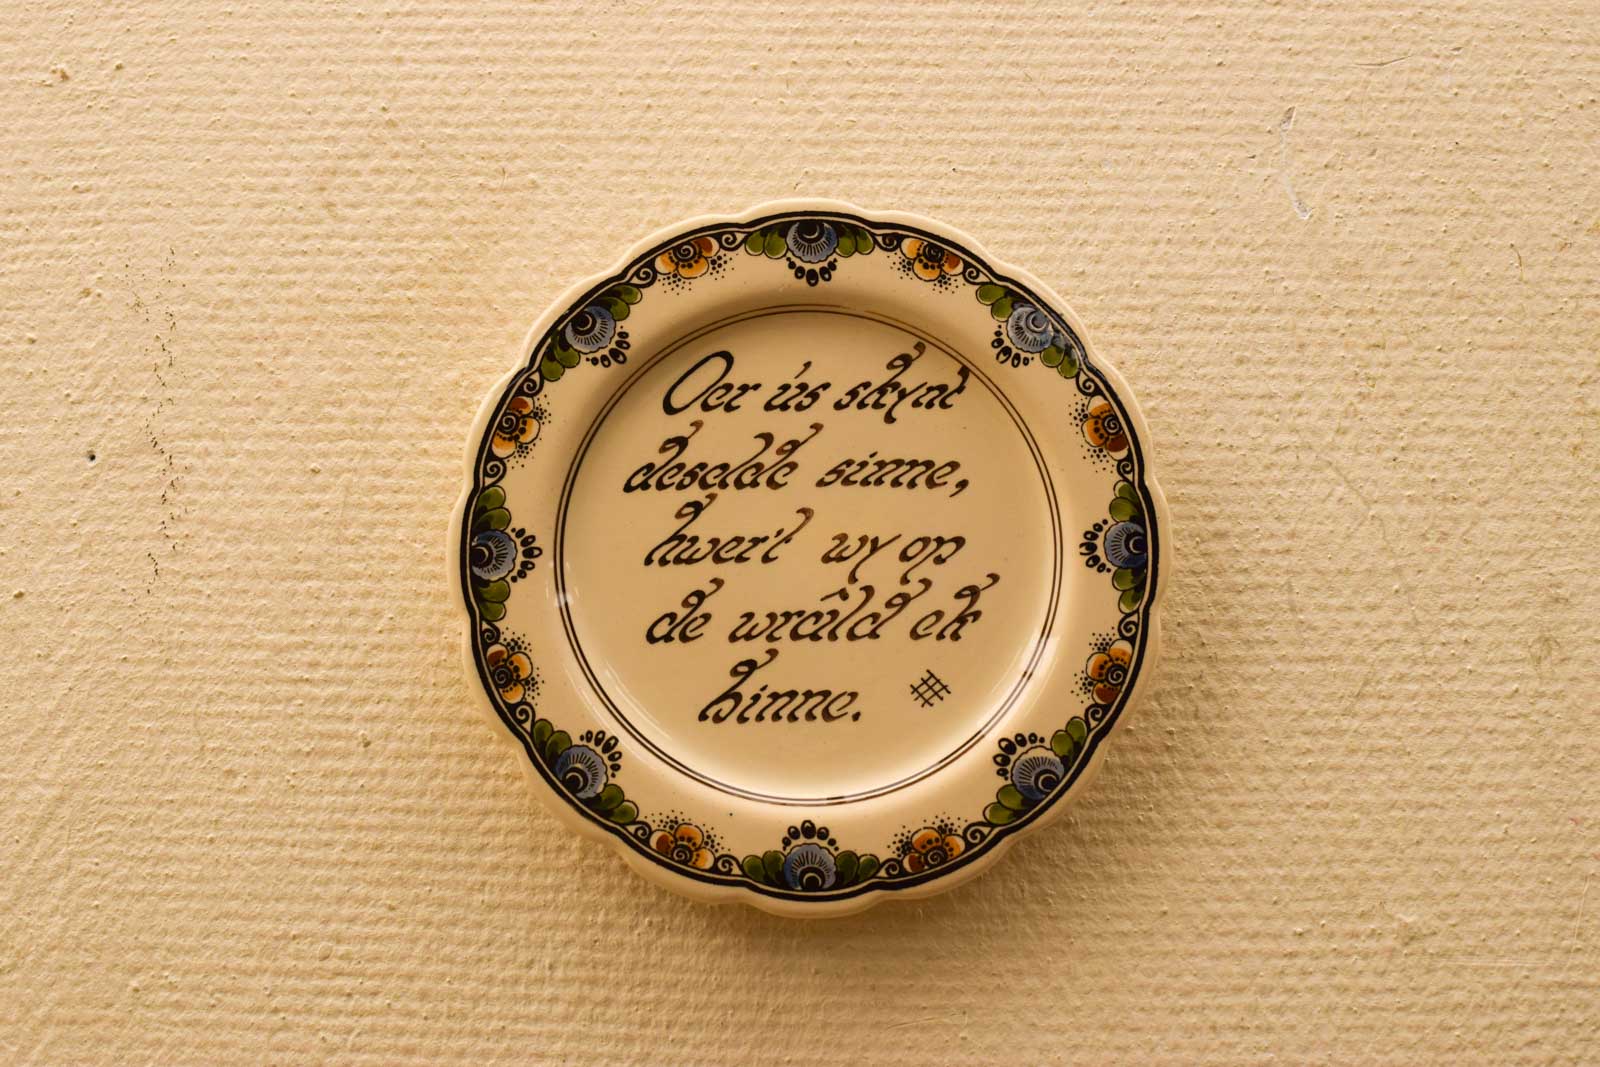 Oer ús skynt
deselde sinne,
hwer't wy op
de wrâld ek
binne.